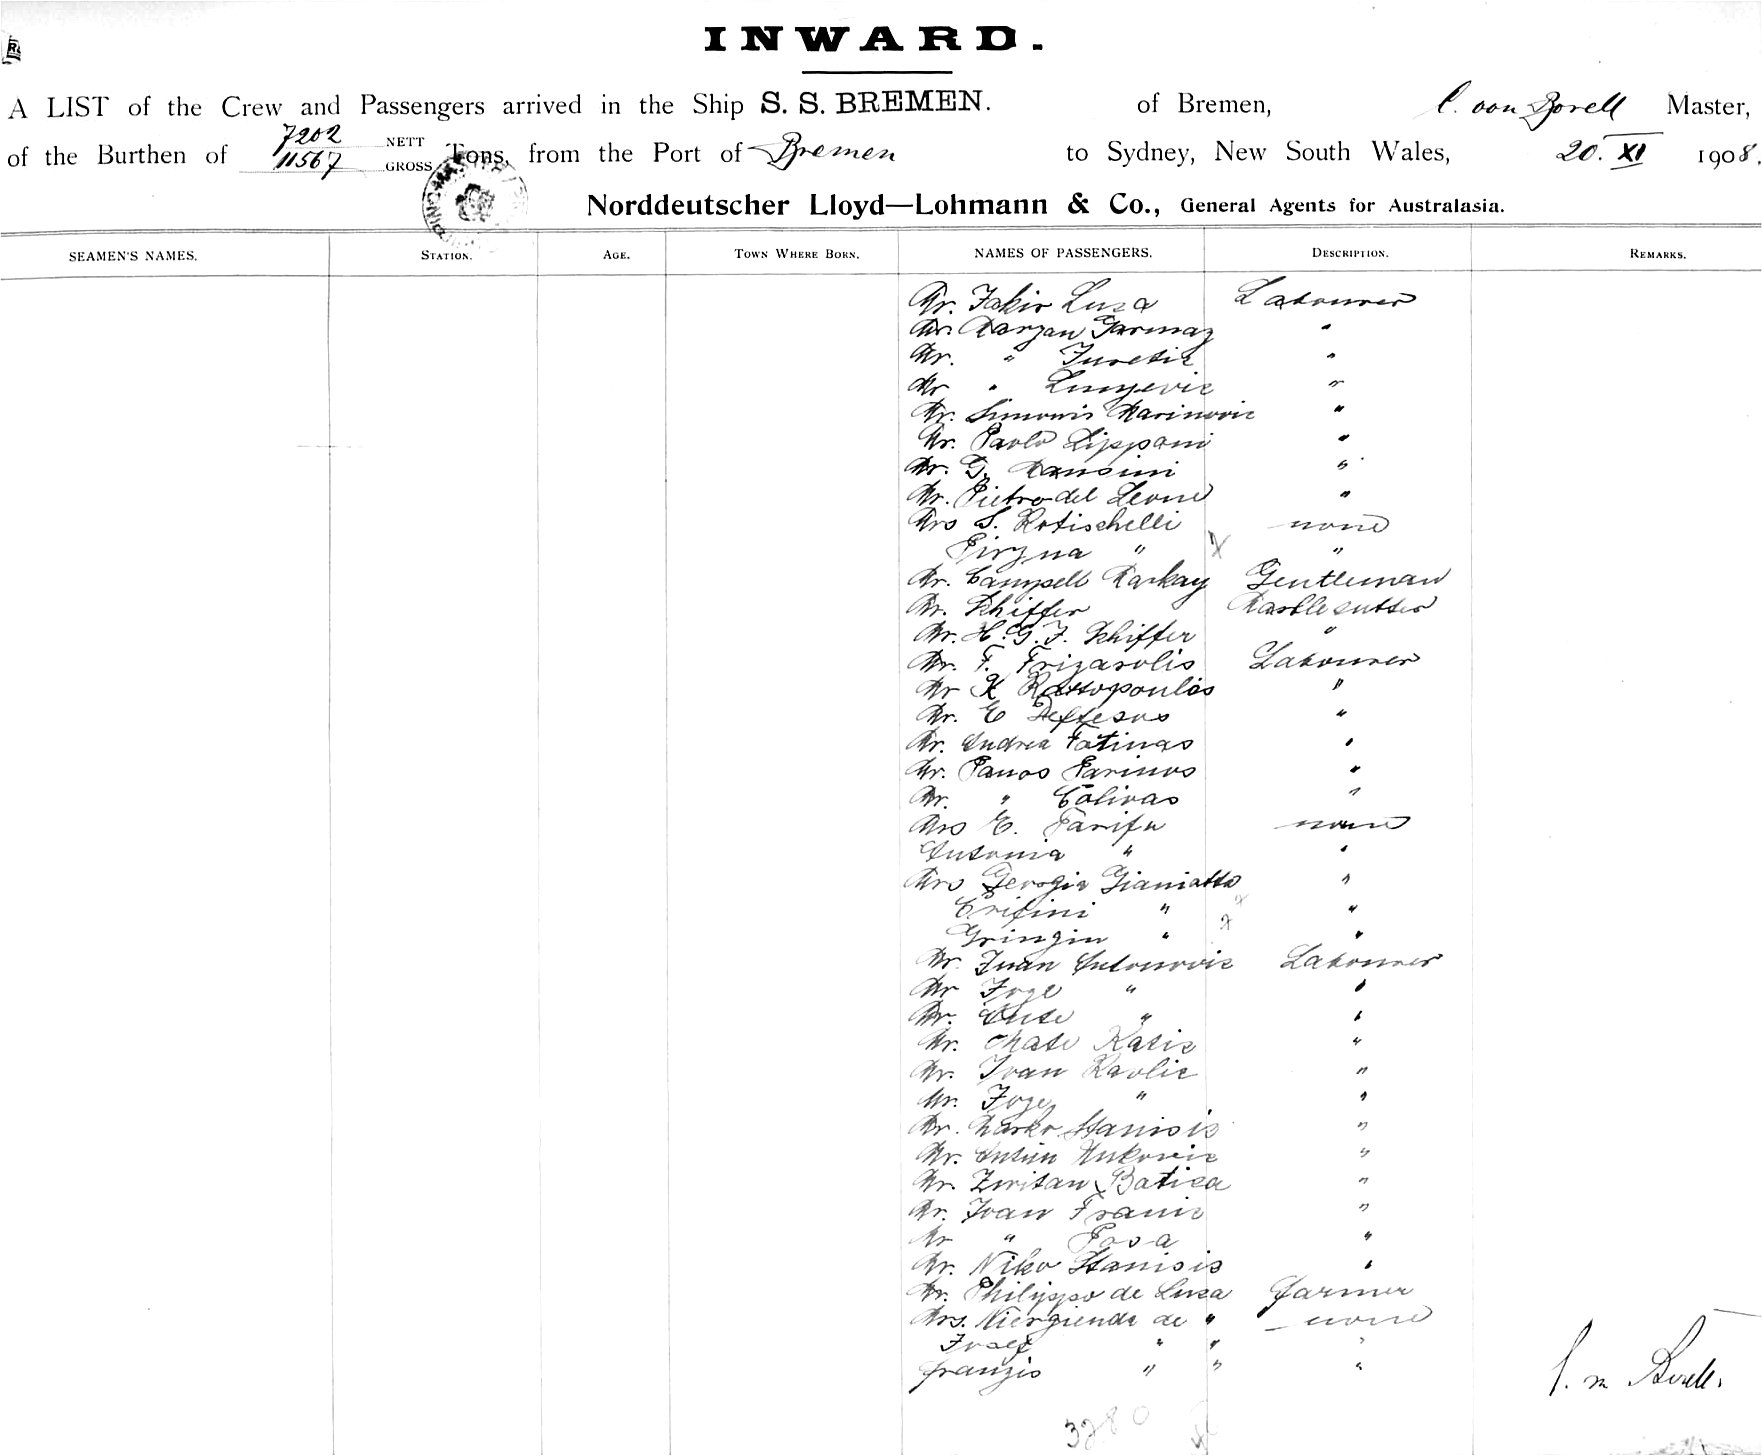 INWARD.
A LIST of the Crew and Passengers arrived in the Ship S. S. BREMEN. of Bremen, C. von Borell Master,
of the Burthen of 7202 NETT 11567 GROSS Tons, from the Port of Bremen to Sydney, New South Wales, 20. XI 1908.
Norddeutscher Lloyd—Lohmann & Co., General Agents for Australasia.
SEAMEN'S NAMES. STATION. AGE. TOWN WHERE BORN. NAMES OF PASSENGERS. DESCRIPTION. REMARKS.
Mr. Fakir Luza Labourer
Mr. Marzan Garmaz "
Mr. " Juretic "
Mr " Lunjevic "
Mr. Simonis Marinovic "
Mr. Paolo Lippani "
Mr. G. Mansini "
Mr. Pietro del Leone "
Mrs S. Rotischelli none
Pirzna " "
Mr. Campell Markay Gentleman
Mr. Schiffer Marble cutter
Mr. H. G. F. Schiffer "
Mr. F. Frizarolis Labourer
Mr K Rassopoulos "
Mr. E Deftesos "
Mr. Andrea Fotinas "
Mr. Panos Parinos "
Mr. " Colivas "
Mrs E. Parifu none
Antonia " "
Mrs Georgia Gianiatta "
Crifini " "
Gringin " "
Mr. Juan Antonovic Labourer
Mr Joze " "
Mr. Ante " "
Mr. Mate Katic "
Mr. Ivan Ravlic "
Mr. Joze " "
Mr. Marko Stanisic "
Mr. Antun Vukovic "
Mr. Zwitan Batica "
Mr. Ivan Franic "
Mr " Posa "
Mr. Niko Stanisis "
Mr. Philippo de Luca Farmer
Mrs. Niergienda de " none
Josef " " "
Franzis " " "
C. v. Borell.
3280